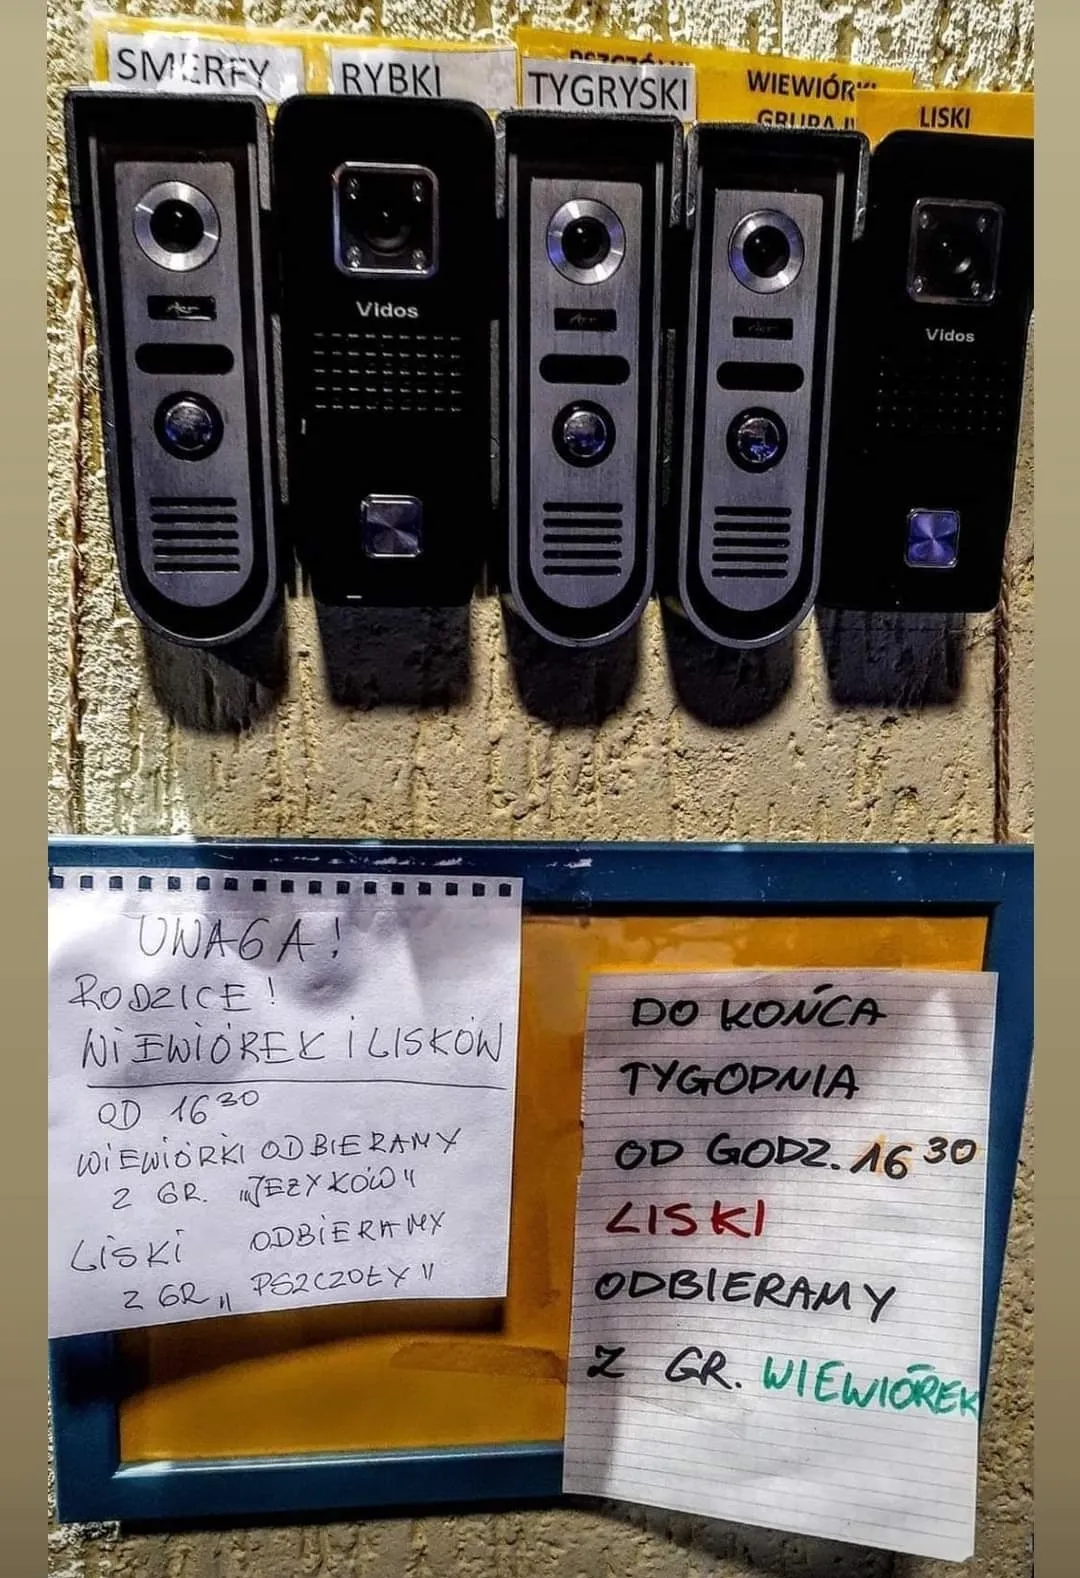 SMERFY
RYBKI
PSZCZÓŁKI
TYGRYSKI
WIEWIÓRKI
GRUPA II
LISKI
Vidos
Vidos
UWAGA!
RODZICE!
WIEWIÓREK i LISKÓW
OD 16 30
WIEWIÓRKI ODBIERAMY
Z GR. "JEŻYKÓW"
LISKI ODBIERAMY
Z GR „PSZCZOŁY"
DO KOŃCA
TYGODNIA
OD GODZ. 16 30
LISKI
ODBIERAMY
Z GR. WIEWIÓREK